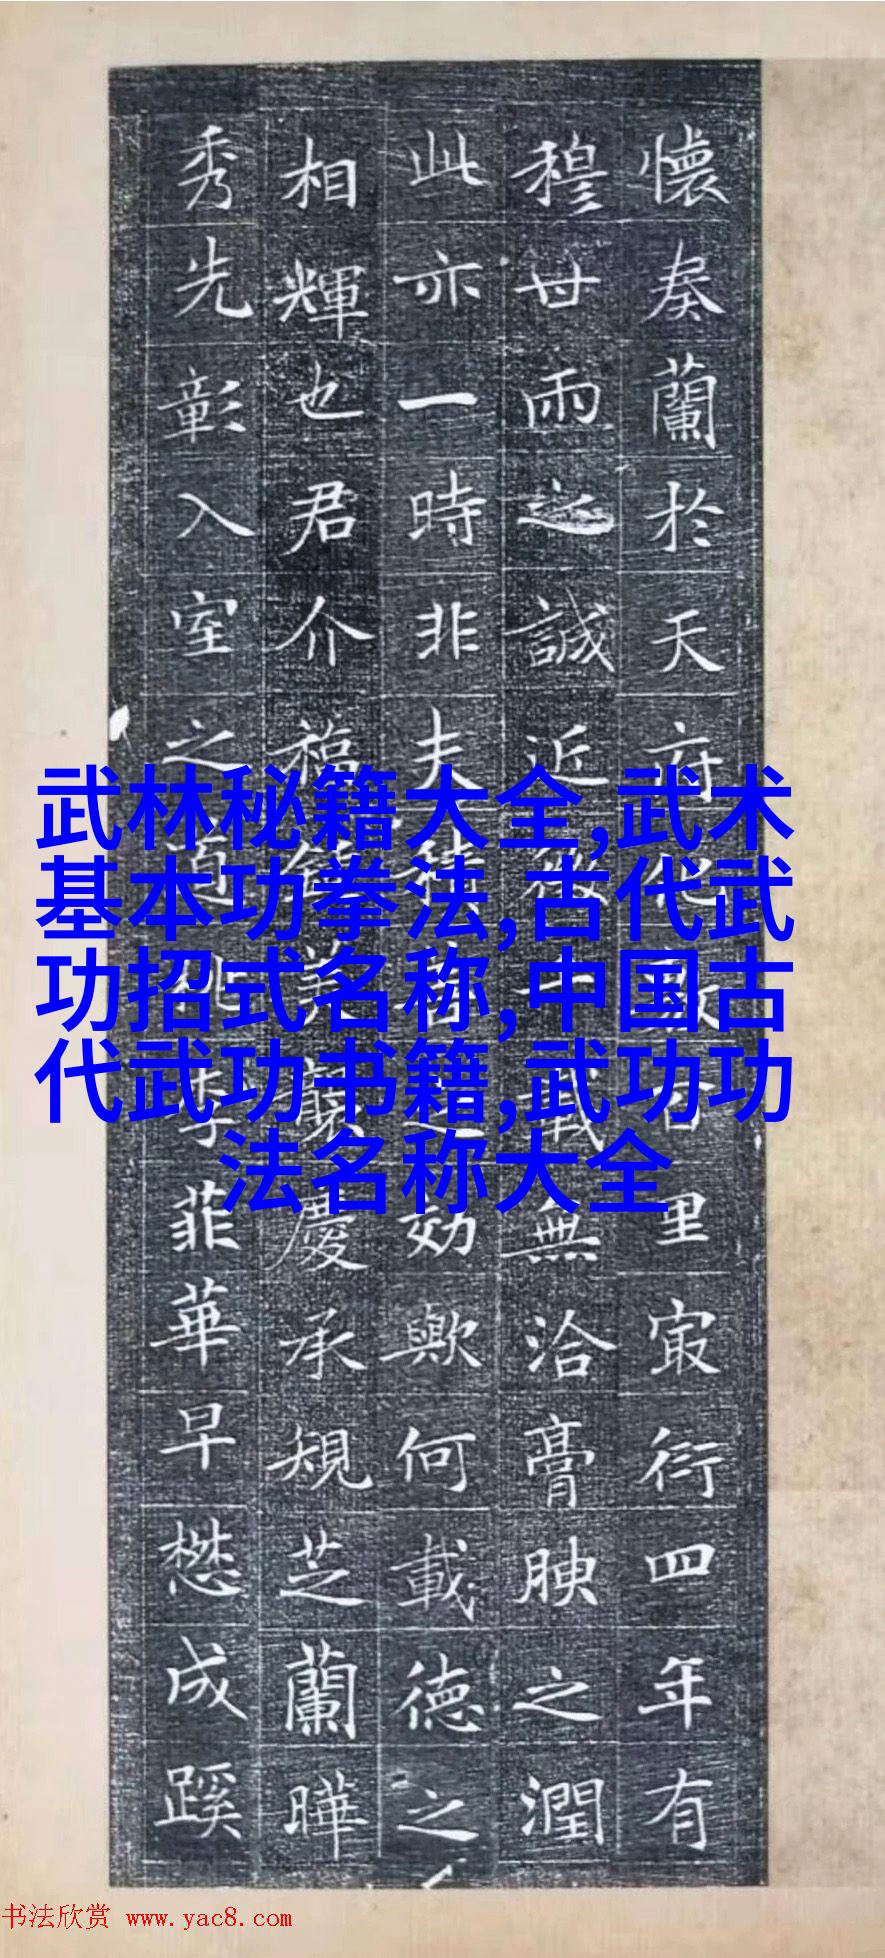 懷奏蘭於天府化百里㝡衍四年有
穆甘雨之誠近徵載無洽膏腴之潤
此亦一時非夫積之効歟何載德之
相輝也君介福美慶承規芝蘭曄
秀先彰入室之道桃李菲華早懋成蹊
武林秘籍大全,武术
基本功拳法,古代武
功招式名称,中国古
代武功书籍,武功功
法名称大全
书法欣赏 www.yac8.com